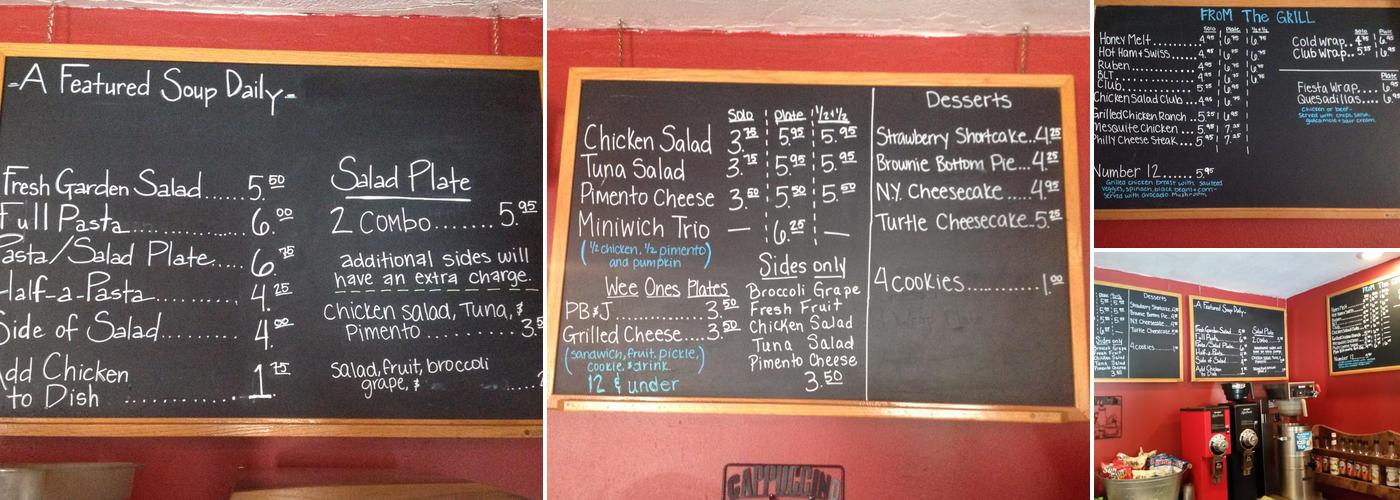 -A Featured Soup Daily-
Fresh Garden Salad..... 5.50
Full Pasta............ 6.00
Pasta/Salad Plate..... 6.75
Half-a-Pasta.......... 4.25
Side of Salad......... 4.00
Add Chicken
to Dish .............. 1.75
Salad Plate
2 combo....... 5.95
additional sides will
have an extra charge.
chicken salad, Tuna, &
Pimento............ 3.5
salad, fruit, broccoli
grape, &
Solo Plate 1/2+1/2
Chicken Salad 3.75 5.95 5.95
Tuna Salad 3.75 5.95 5.95
Pimento Cheese 3.50 5.50 5.50
Miniwich Trio — 6.25 —
(1/2 chicken, 1/2 pimento)
and pumpkin
Wee Ones Plates
PB&J.............. 3.50
Grilled Cheese.... 3.50
(sandwich, fruit, pickle,
cookie, & drink)
12 & under
Sides only
Broccoli Grape
Fresh Fruit
Chicken Salad
Tuna Salad
Pimento Cheese
3.50
Desserts
Strawberry Shortcake.. 4.25
Brownie Bottom Pie... 4.25
N.Y. Cheesecake..... 4.95
Turtle Cheesecake.. 5.25
4 cookies........... 1.00
CAPPUCCINO
FROM The GRILL
Solo Plate 1/2+1/2
Honey Melt........ 4.95 6.75 6.75
Hot Ham & Swiss...... 4.95 6.75 6.75
Ruben............. 4.95 6.75 6.75
BLT............... 4.95 6.75 6.75
Club.............. 5.25 6.95
Chicken Salad Club.. 4.95 6.75
Grilled Chicken Ranch .. 5.25 6.95
Mesquite Chicken .. 5.95 7.25
Philly Cheese Steak... 5.95 7.25
Number 12...... 5.95
Grilled chicken breast with sauteed
veggies, spinach, black bean & corn-
served with avocado mushroom
Solo Plate
Cold Wrap.. 4.75
Club Wrap... 5.25
Plate
Fiesta Wrap....
Quesadillas....
chicken or beef-
Served with chips, salsa,
guacamole & sour cream.
Desserts
Strawberry Shortcake
Brownie Bottom Pie
N.Y. Cheesecake
Turtle Cheesecake
4 cookies
Sides only
Broccoli Grape
Fresh Fruit
Chicken Salad
Tuna Salad
Pimento Cheese
3.50
A Featured Soup Daily-
Fresh Garden Salad
Full Pasta
Pasta/Salad Plate
Half-a-Pasta
Side of Salad
Add Chicken
to Dish
Salad Plate
2 combo
FROM The
Number 12
ICED
TEA